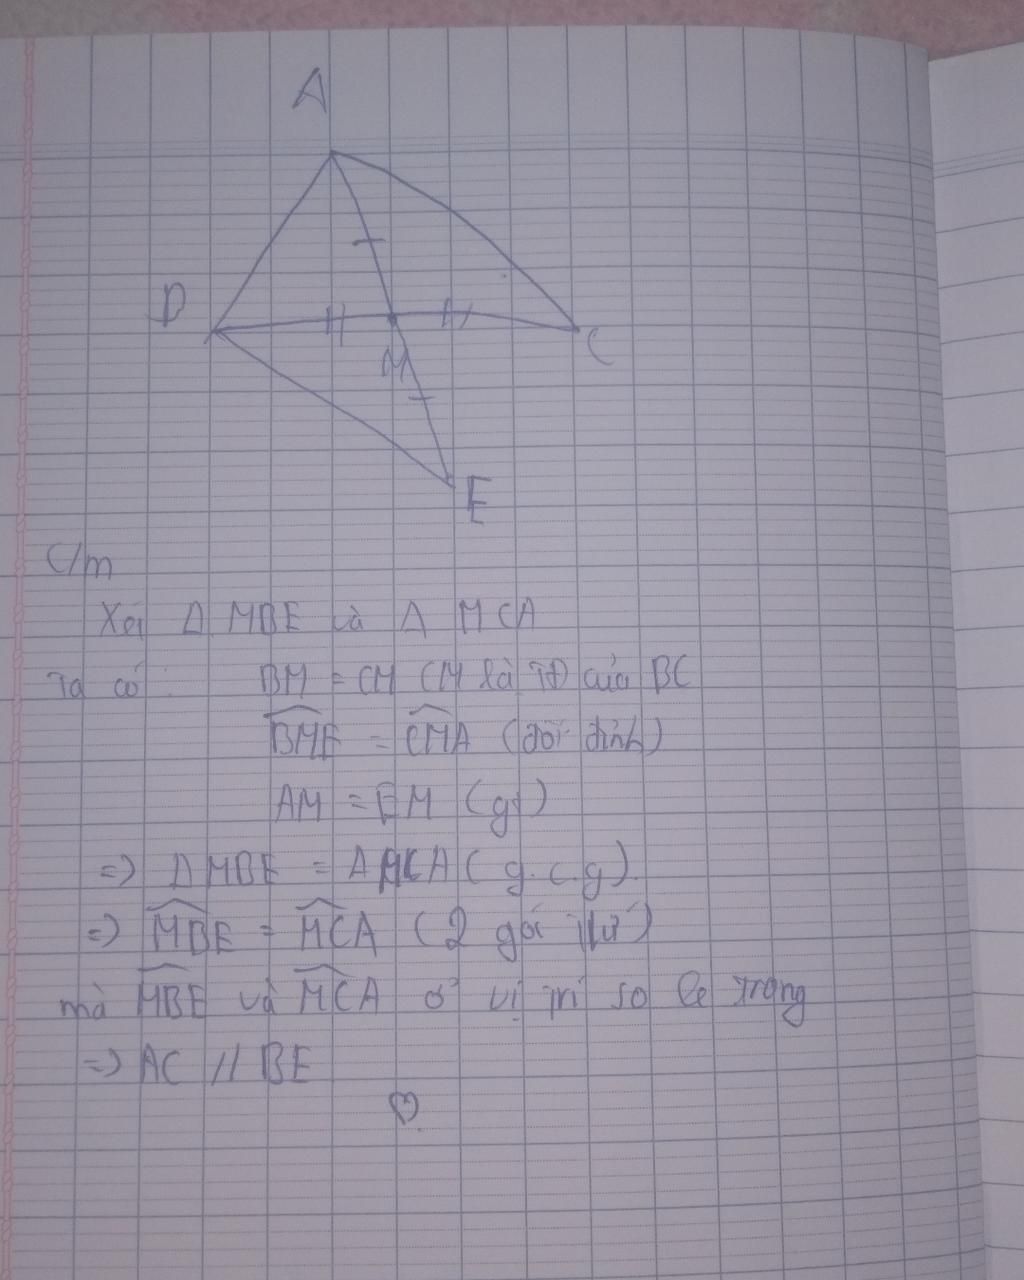 A
D
C
M
E
C/m
Xét Δ MBE và Δ MCA
Ta có : BM = CM (M là TĐ của BC
BME = CMA (đối đỉnh)
AM = EM (gt)
=> Δ MBE = Δ MCA ( g.c.g)
=> MBE = MCA ( 2 góc tứ)
mà MBE và MCA ở vị trí so le trong
=> AC // BE